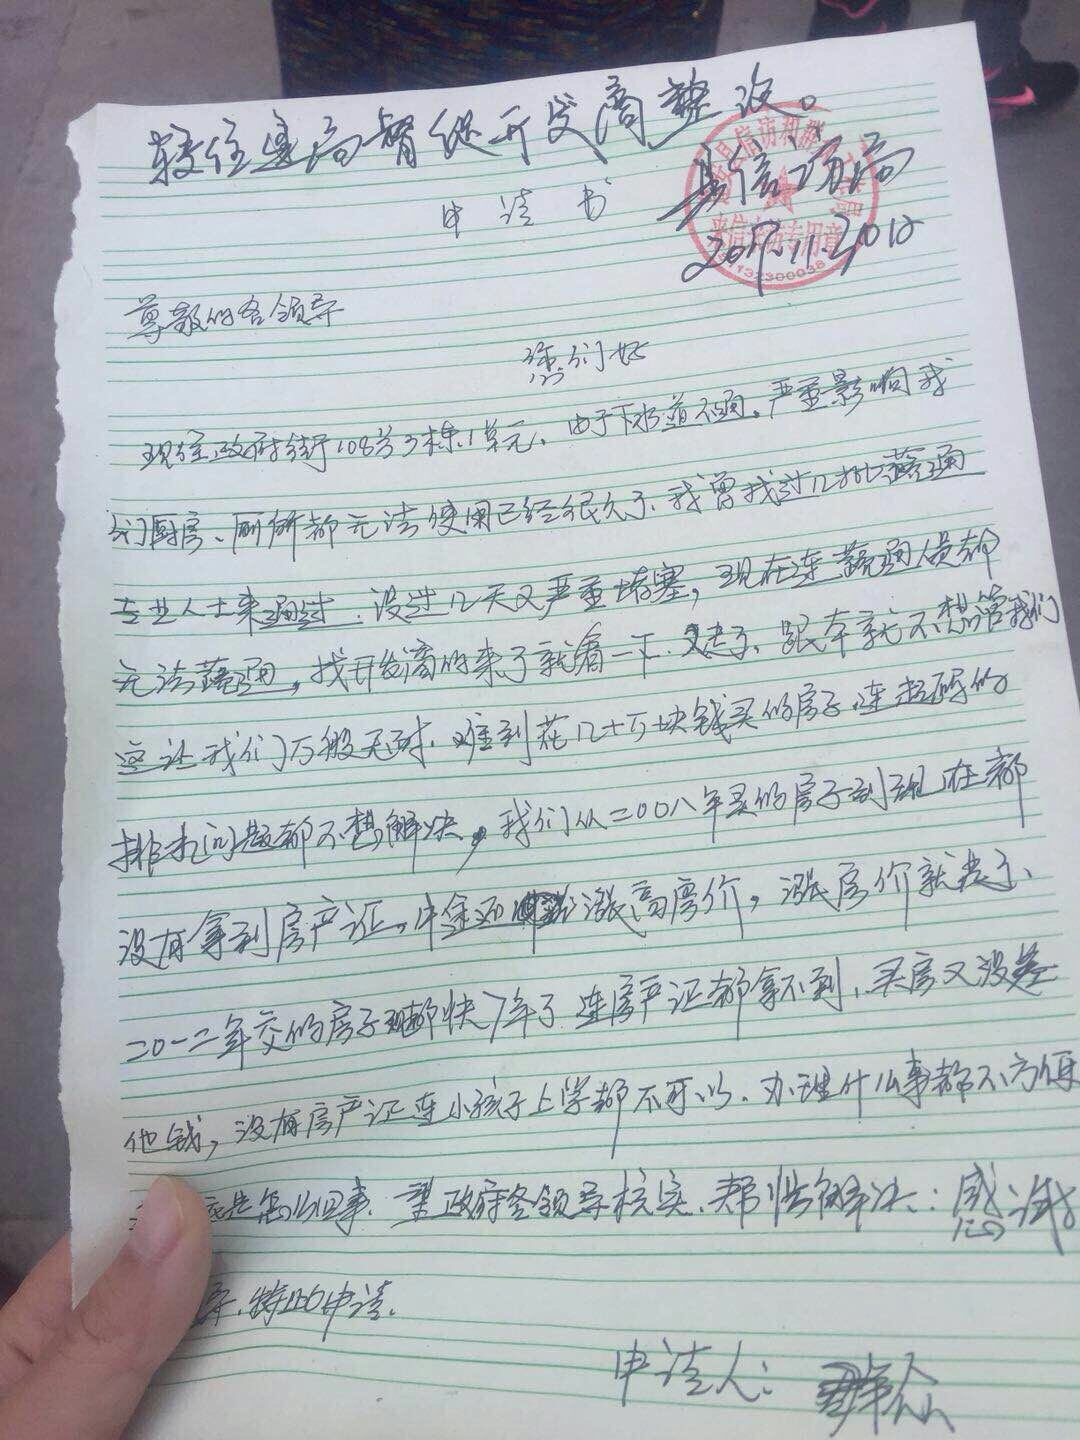 转住建局督促开发商整改。
县信访局
2017.11.2010
申请书
尊敬的各领导
您们好
现住政府街108号3栋.1单元、由于下水道不通。严重影响我
们厨房、厕所都无法使用已经很久了、我曾找过几批蔬通
专业人士来通过.没过几天又严重堵塞，现在连蔬通人员都
无法蔬通，找开发商的来了就看一下.又走了、跟本就不想管我们
这让我们万般无耐.难到花几十万块钱买的房子.连起码的
排水问题都不想解决，我们从二00八年买的房子到现在都
没有拿到房产证。中途还涨高房价，涨房价就走了、
二0一二年交的房子都快7年了 连房产证都拿不到、买房又没差
他钱，没有房产证连小孩子上学都不可以.办理什么事都不方便
底是怎么回事.望政府各领导核实、帮忙解决：感谢
导.特此申请.
申请人：群众
信访和群
来信来访专用章